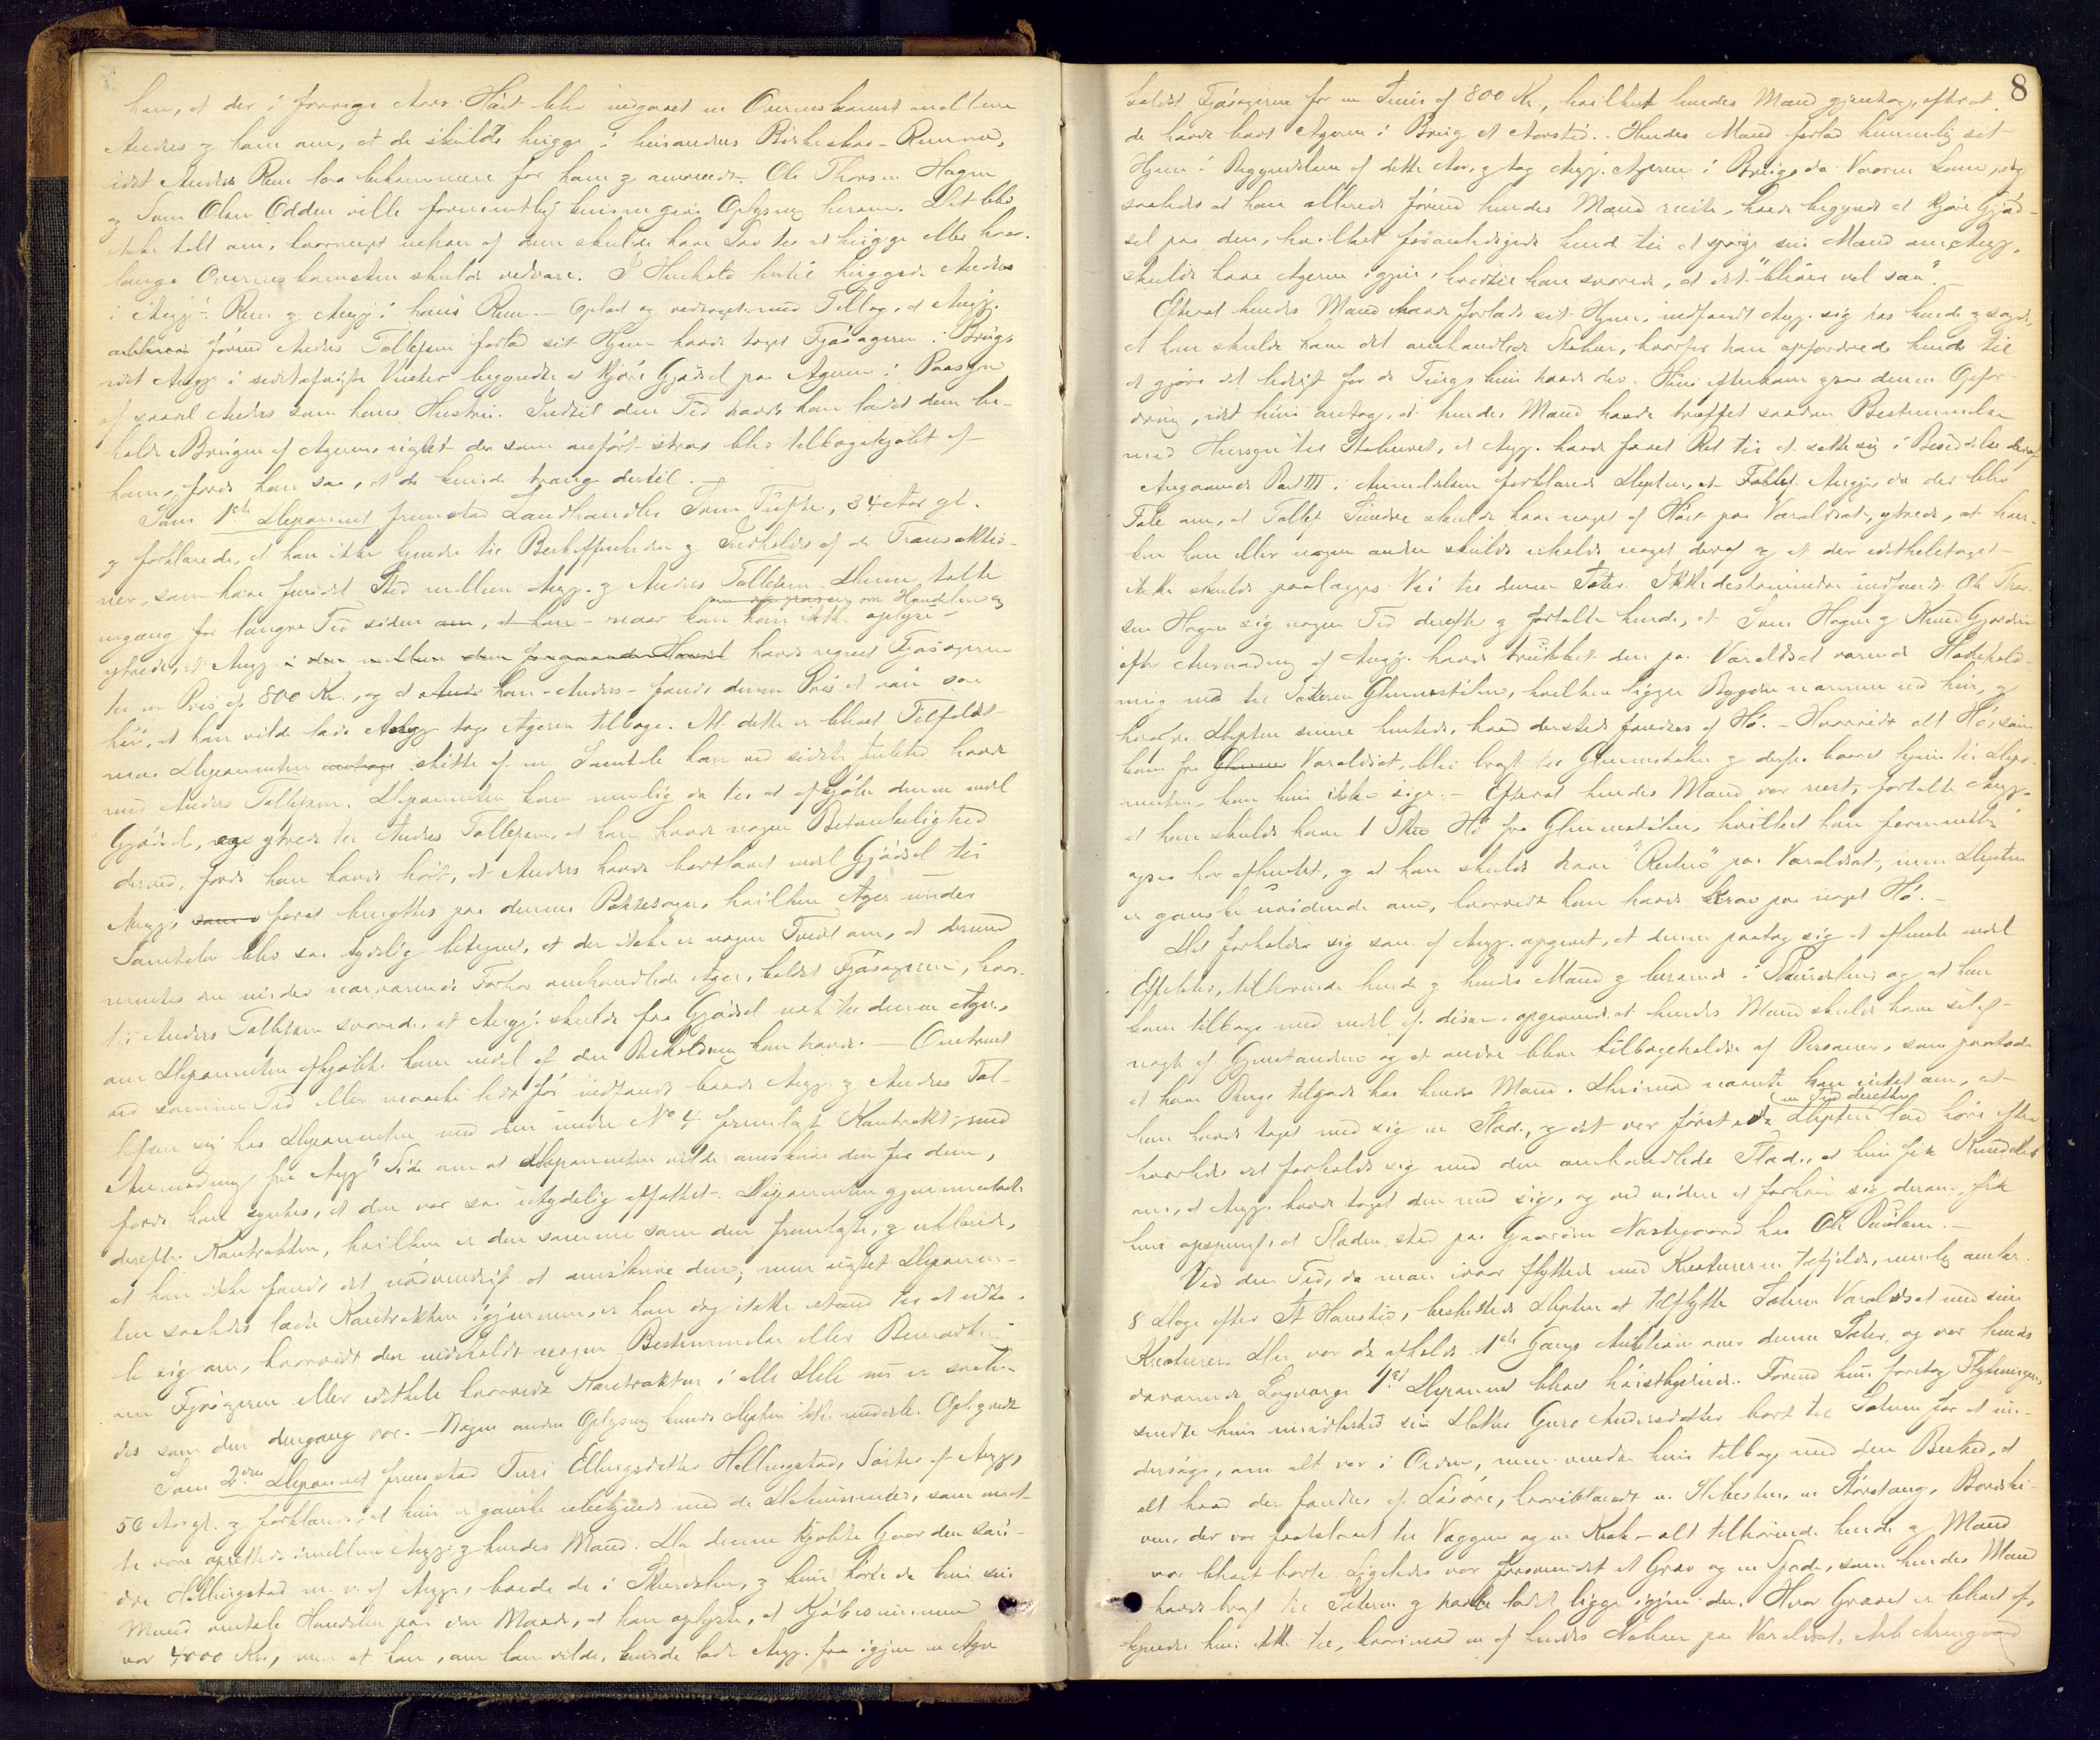 han, at der i forrige Aars Høst blev indgaaet en Overenskomst mellem
Anders og ham om, at de skulde hugge i hinandens Birkeskov-Rum,
idet Anders Rum laa bekvemmere for ham og omvendt. Ole Thorsen Hagen
og Sven Olsen Odden ville formentlig kunne give Oplysning herom. Det blev
ikke talt om, hvormeget enhver af dem skulde have Lov til at hugge eller hvor-
længe Overenskomsten skulde vedvare. I Henhold hertil huggede Anders
i Angj's Rum og Angj i hans Rum. — Oplæst og vedtaget med Tillæg, at Angj.
forend Anders Tollefsen forlod sit Hjem havde taget Fjøsageren i Brug,
idet Angj i sidstafvigte Vinter begyndte at kjøre Gjødsel paa Ageren i Paasyn
af saavel Anders som hans Hustru. Indtil den Tid havde han ladet dem be-
holde Brugen af Ageren, uagtet den som anført strax blev tilbagekjøbt af
ham, fordi han saa, at de kunde trænge dertil. —
Som 1ste Deponent fremstod Landhandler Sven Tufte, 34 Aar gl.
og forklarede, at han ikke kjender til Beskaffenheden og Indholdet af de Transaktio-
ner, som have fundet Sted mellem Angj. og Anders Tollefsen. Denne talte
engang for længre Tid siden – naar kan han ikke oplyse – om Handelen og
ytrede, at Angj. havde regnet Fjøsageren
til en Pris af 800 Kr., og at han – Anders – fandt denne Pris at være saa
høi, at han vilde lade Angj. tage Ageren tilbage. At dette er blevet Tilfældet
maa Deponenten slutte af en Samtale han ved sidste Juletid havde
med Anders Tollefsen. Deponenten kom nemlig da til at afkjøbe denne endel
Gjødsel, og ytrede til Anders Tollefsen, at han havde nogen Betænkelighed
derved, fordi han havde hørt, at Anders havde bortlovet endel Gjødsel til
Angj. for at benyttes paa dennes Ager, hvilken Ager under
Samtalen blev saa tydelig betegnet, at der ikke er nogen Tvivl om, at derved
mentes den under nærværende Forhør omhandlede Ager, kaldet Fjøsageren, hvor-
til Anders Tollefsen svarede, at Angj. skulde faa Gjødsel nok til denne Ager,
om Deponenten afkjøbte ham endel af den Beholdning han havde. — Omtrent
ved samme Tid eller maaske lidt før indfandt baade Angj. og Anders Tol-
lefsen sig hos Deponenten med den under No 4 fremlagte Kontrakt, med
Anmodning fra Angj's Side om at Deponenten vilde omskrive den for dem,
fordi han syntes, at den var saa utydelig affattet. Deponenten gjennemlæste
derefter Kontrakten, hvilken er den samme som den fremlagte, og erklærede,
at han ikke fandt det nødvendigt at omskrive den; men uagtet Deponen-
ten saaledes læste Kontrakten igjennem, er han dog ikke istand til at udta-
le sig om, hvorvidt den indeholdt nogen Bestemmelse eller Bemærkning
om Fjøsageren eller idethele hvorvidt Kontrakten i alle Dele nu er saale-
des som den dengang var. – Nogen anden Oplysning kunde Depten ikke meddele. Opl. og vedt.
Som 2den Deponent fremstod Turi Ellingsdatter Hellingstad, Søster af Angj.,
56 Aar gl. og forklarede, at hun er ganske ubekjendt med de Dokumenter, som maat-
te være oprettede imellem Angj. og hendes Mand. Da denne kjøbte Gaarden søn-
dre Hellingstad m. v. af Angj., boede de i Skurdalen, og hun hørte da kun sin
Mand omtale Handelen paa den Maade, at han oplyste, at Kjøbesummen
var 4000 Kr., men at han, om han vilde, kunde lade Angj. faa igjen en Ager
8
kaldet Fjøsageren for en Sum af 800 Kr., hvilket hendes Mand gjentog, efterat
de havde havt Ageren i Brug et Aarstid. Hendes Mand forlod hemmelig sit
Hjem i Begyndelsen af dette Aar, og tog Angj. Ageren i Brug, da Vaaren kom, dog
saaledes at han allerede førend hendes Mand reiste, havde begyndt at kjøre Gjød-
sel paa den, hvilket foranledigede hende til at spørge sin Mand om Angj.
skulde have Ageren igjen, hvortil han svarede, at det "bliver vel saa".
Efterat hendes Mand havde forladt sit Hjem, indfandt Angj. sig hos hende og sagde,
at han skulde have det omhandlede Stabur, hvorfor han opfordrede hende til
at gjøre det ledigt for de Ting hun havde der. Hun efterkom denne Opfor-
dring, idet hun antog, at hendes Mand havde truffet saadan Bestemmelse
med Hensyn til Staburet, at Angj. havde faaet Ret til at sætte sig i Besiddelse deraf
Angaaende Post III i Anmeldelsen forklarede Depten, at Angj., da der blev
Tale om, at Tollef skulde have noget af Høet paa Varaldset, ytrede, at hver-
ken han eller nogen anden skulde erholde noget deraf og at der idetheletaget
ikke skulde paalægges Vei til denne Sæter. Ikkedestomindre indfandt Ole Thor-
sen Hagen sig nogen Tid derefter og fortalte hende, at Sven Hagen og Knud Gjorden
efter Anmodning af Angj. havde trukket den paa Varaldset værende Høbehold-
ning ned til Sæteren Glimmestølen, hvilken ligger Bygden nærmere end hin, og
hvorfra Depten senere hentede, hvad dersteds fandtes af Hø. – Hvorvidt alt Hø, som
kom fra Varaldset, blev bragt til Glimmestølen og derfra baaret hjem til Depo-
nenten, kan hun ikke sige. – Efterat hendes Mand var reist, fortalte Angj.
at han skulde have 1 Hø fra Glimmestølen, hvilket han formentlig
ogsaa har afhentet, og at han skulde have paa Varaldset, men Depten
er ganske uvidende om, hvorvidt han havde Krav paa noget Hø. –
Det forholder sig som af Angj. opgivet, at denne paatog sig at afhente endel
Effekter, tilhørende hende og hendes Mand og beroende i Skurdalen, og at han
kom tilbage med endel af disse, opgivende at hendes Mand skulde have
nogle af Gjenstandene og at andre bleve tilbageholdte af Personer, som paastode
at have Penge tilgode hos hendes Mand. Derimod nævnte han intet om, at
han havde taget med sig en Slæde, og det var først da Depten en Tid derefter lod høre efter
hvorledes det forholdt sig med den omhandlede Slæde, at hun fik Kundskab
om, at Angj. havde taget den med sig, og ved videre at forhøre sig derom, fik
hun opspurgt, at Slæden stod paa Gaarden Nestegaard hos Ole Paulsen. —
Ved den Tid, da man ivaar flyttede med Kreaturerne tilfjelds, nemlig omtr.
8 Dage efter St Hanstid, besluttede Depten at tilflytte Sæteren Varaldset med sine
Kreaturer. Der var da afholdt 1ste Gangs Auktion over denne Sæter, og var hendes
daværende Laugværge 1ste Deponent blevet høistbydende. Forend hun foretog Flytningen,
sendte hun imidlertid sin Datter Guro Andersdatter bort til Sæteren for at un-
dersøge, om alt var i Orden, men vendte hun tilbage med den Besked, at
alt hvad der fandtes af Løsøre, hvoriblandt en, en Størstang, Bordski-
ven, der var fastslaaet til Væggen og en Krak – alt tilhørende hende og Mand
var blevet borte. Ligeledes var forsvundet et Grev og en Spade, som hendes Mand
havde bragt til Sæteren og havde ladet ligge igjen der. Hvor Grevet er blevet af,
kjender hun ikke til, hvorimod en af hendes Naboer paa Varaldset,